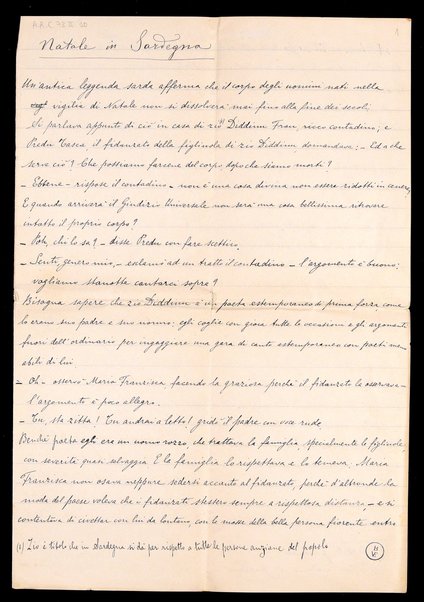 A.R.C. 72 II 20
1
Natale in Sardegna
Un'antica leggenda sarda afferma che il corpo degli uomini nati nella
vigilia di Natale non si dissolverà mai fino alla fine dei secoli
Si parlava appunto di ciò in casa di zio Diddinu Frau, ricco contadino; e
Predu Tasca il fidanzato della figliuola di zio Diddinu domandava: – Ed a che
serve ciò? Che possiamo farcene del corpo dopo che siamo morti?
– Ebbene – rispose il contadino – non è una cosa divina non essere ridotti in cenere?
E quando arriverà il Giudizio Universale non sarà una cosa bellissima ritrovare
intatto il proprio corpo?
– Poh, chi lo sa? – disse Predu con fare scettico.
– Senti, genero mio, – esclamò ad un tratto il contadino – l'argomento è buono:
vogliamo stanotte cantarci sopra?
Bisogna sapere che zio Diddinu è un poeta estemporaneo di prima forza come
lo erano suo padre e suo nonno: egli coglie con gioia tutte le occasioni e gli argomenti
fuori dell'ordinario per ingaggiare una gara di canto estemporaneo con poeti meno
abili di lui.
– Oh – osservò Maria Francisca facendo la graziosa perché il fidanzato la osservava –
l'argomento è poco allegro.
– Tu, sta zitta! Tu andrai a letto! gridò il padre con voce rude.
Benché poeta egli era un uomo rozzo che trattava la famiglia, specialmente le figliuole,
con severità quasi selvaggia. E la famiglia lo rispettava e lo temeva. Maria
Francisca non osava neppure sedersi accanto al fidanzato, perché d'altronde la
moda del paese voleva che i fidanzati stessero sempre a rispettosa distanza – e si
contentava di civettar con lui da lontano, con le mosse della bella persona fiorente entro
(1) Zio è titolo che in Sardegna si dà per rispetto a tutte le persone anziane del popolo